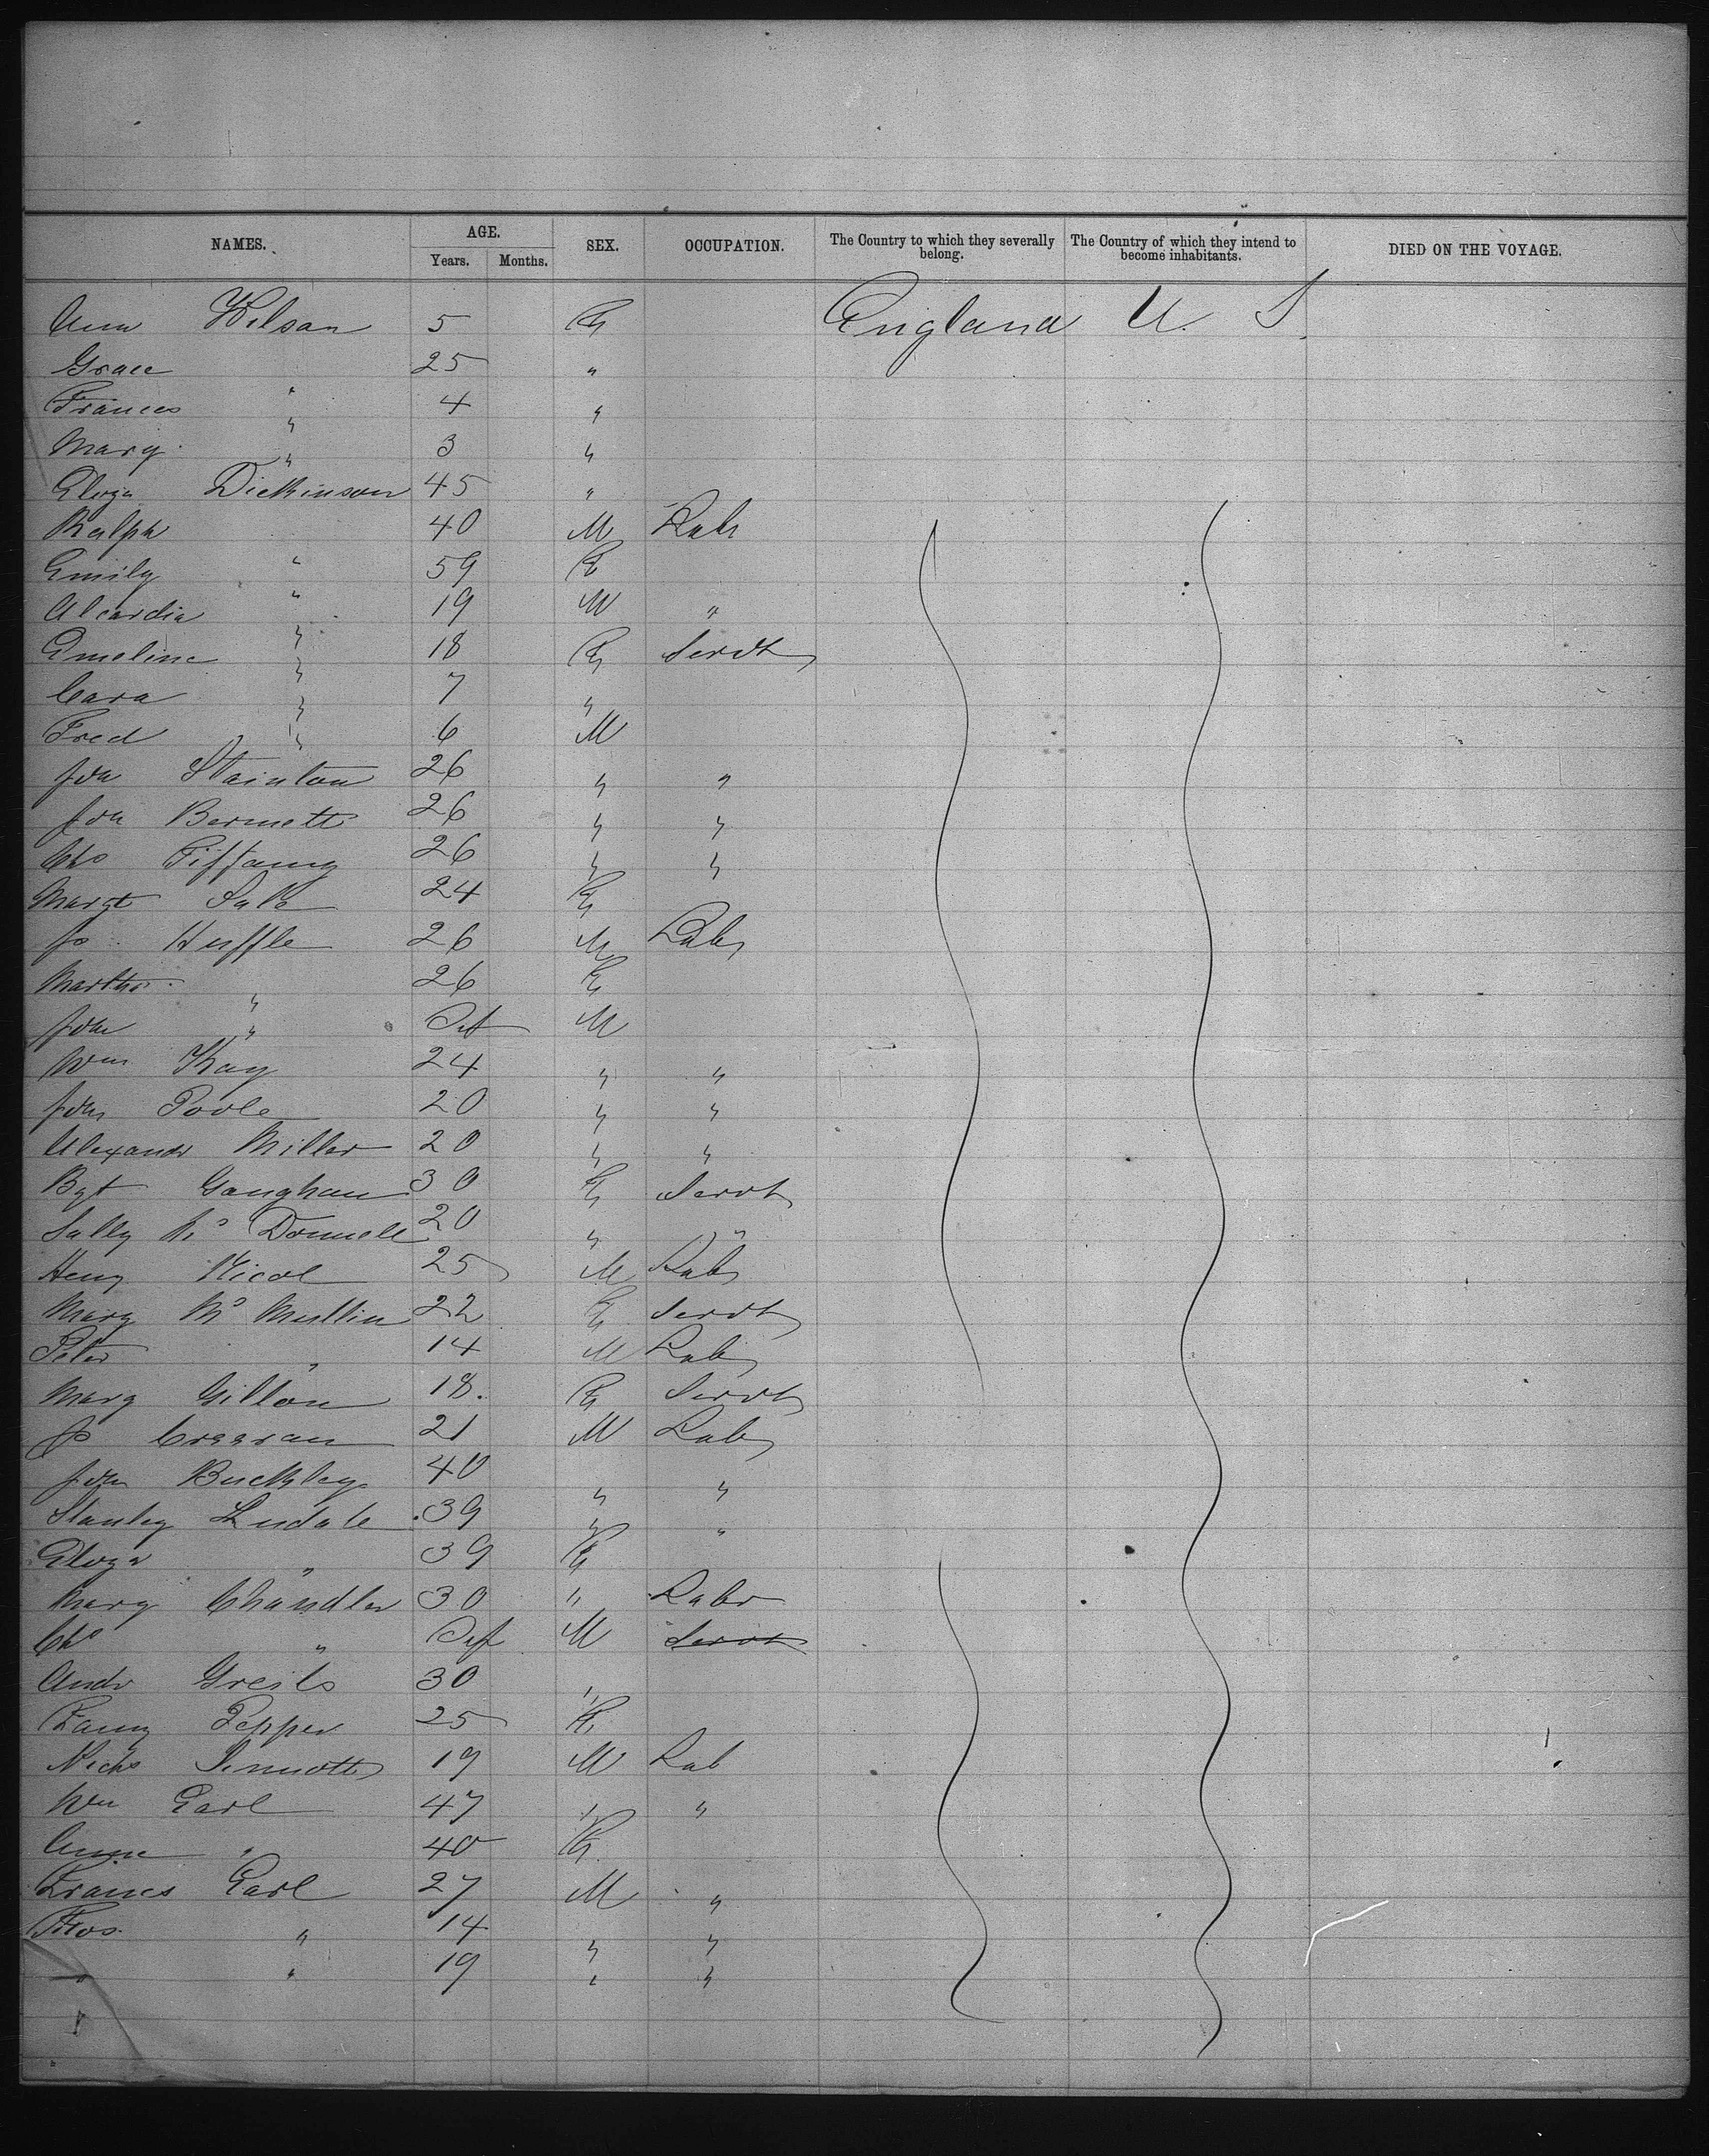 NAMES. AGE. Years. Months. SEX. OCCUPATION. The Country to which they severally belong. The Country of which they intend to become inhabitants. DIED ON THE VOYAGE.
Ann Wilson 5 F England U. S.
Grace " 25 "
Frances " 4 "
Mary " 3 "
Eliza Dickinson 45 "
Ralph " 40 M Labr
Emily " 59 F
19 M "
Emeline " 18 F Servt
Cara " 7 "
Fred " 6 M
Jno Stainton 26 " "
Jno Bennett 26 " "
Chs Tiffany 26 " "
Margt Sale 24 F
Js Huffle 26 M Labr
Martha " 26 F
Jno " Inf M
Wm Kay 24 " "
Jno Poole 20 " "
Alexandr Miller 20 " "
Bgt Gaughan 30 F Servt
Sally Mc Donnell 20 " "
Heny Nicol 25 M Labr
Mary Mc Mullin 22 F Servt
Peter " 14 M Labr
Mary Gillon 18 F Servt
Js 21 M Labr
Jno Buckley 40 " "
Stanley 39 " "
Eliza " 39 F
Mary Chandler 30 " Labr
Chs " Inf M Servt
Andw 30 "
Fanny Pepper 25 F
Nichs Sinnott 19 M Lab
Wm Earl 47 " "
Anne " 40 F
Francs Earl 27 M "
Thos " 14 " "
" " 19 " "